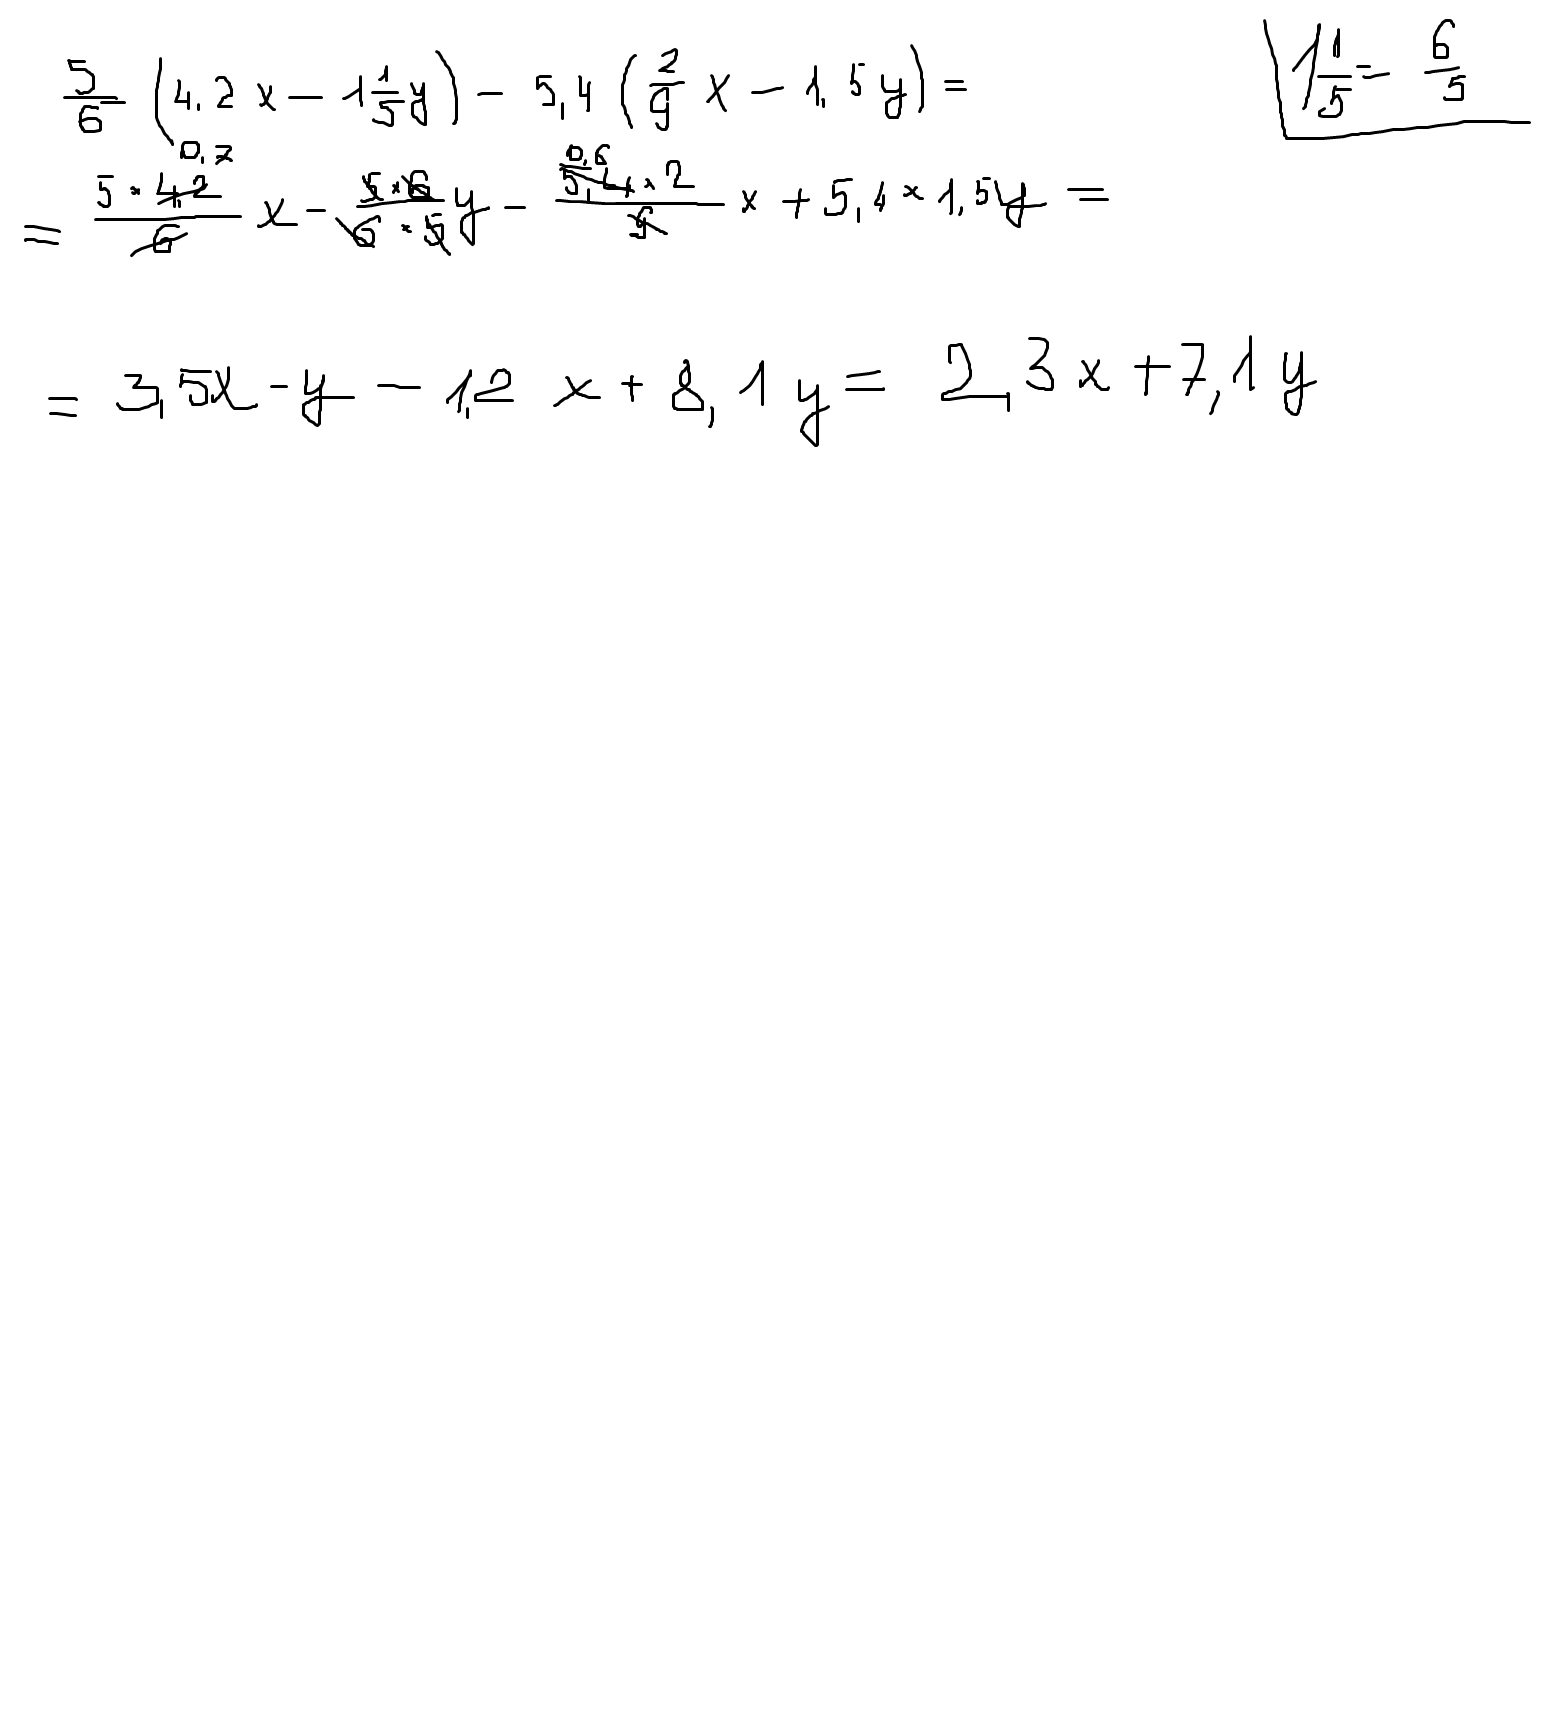 5/6 (4.2 x − 1 1/5 y) − 5,4 (2/9 x − 1,5 y) =
1 1/5 = 6/5
0,7 0,6
= 5 × 4,2 / 6 x − 5 × 6 / 6 × 5 y − 5,4 × 2 / 9 x + 5,4 × 1,5y =
= 3,5x − y − 1,2 x + 8,1 y = 2,3 x + 7,1 y